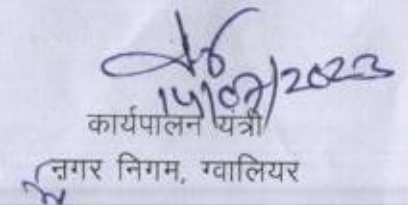 14/07/2023
कार्यपालन यंत्री
नगर निगम, ग्वालियर